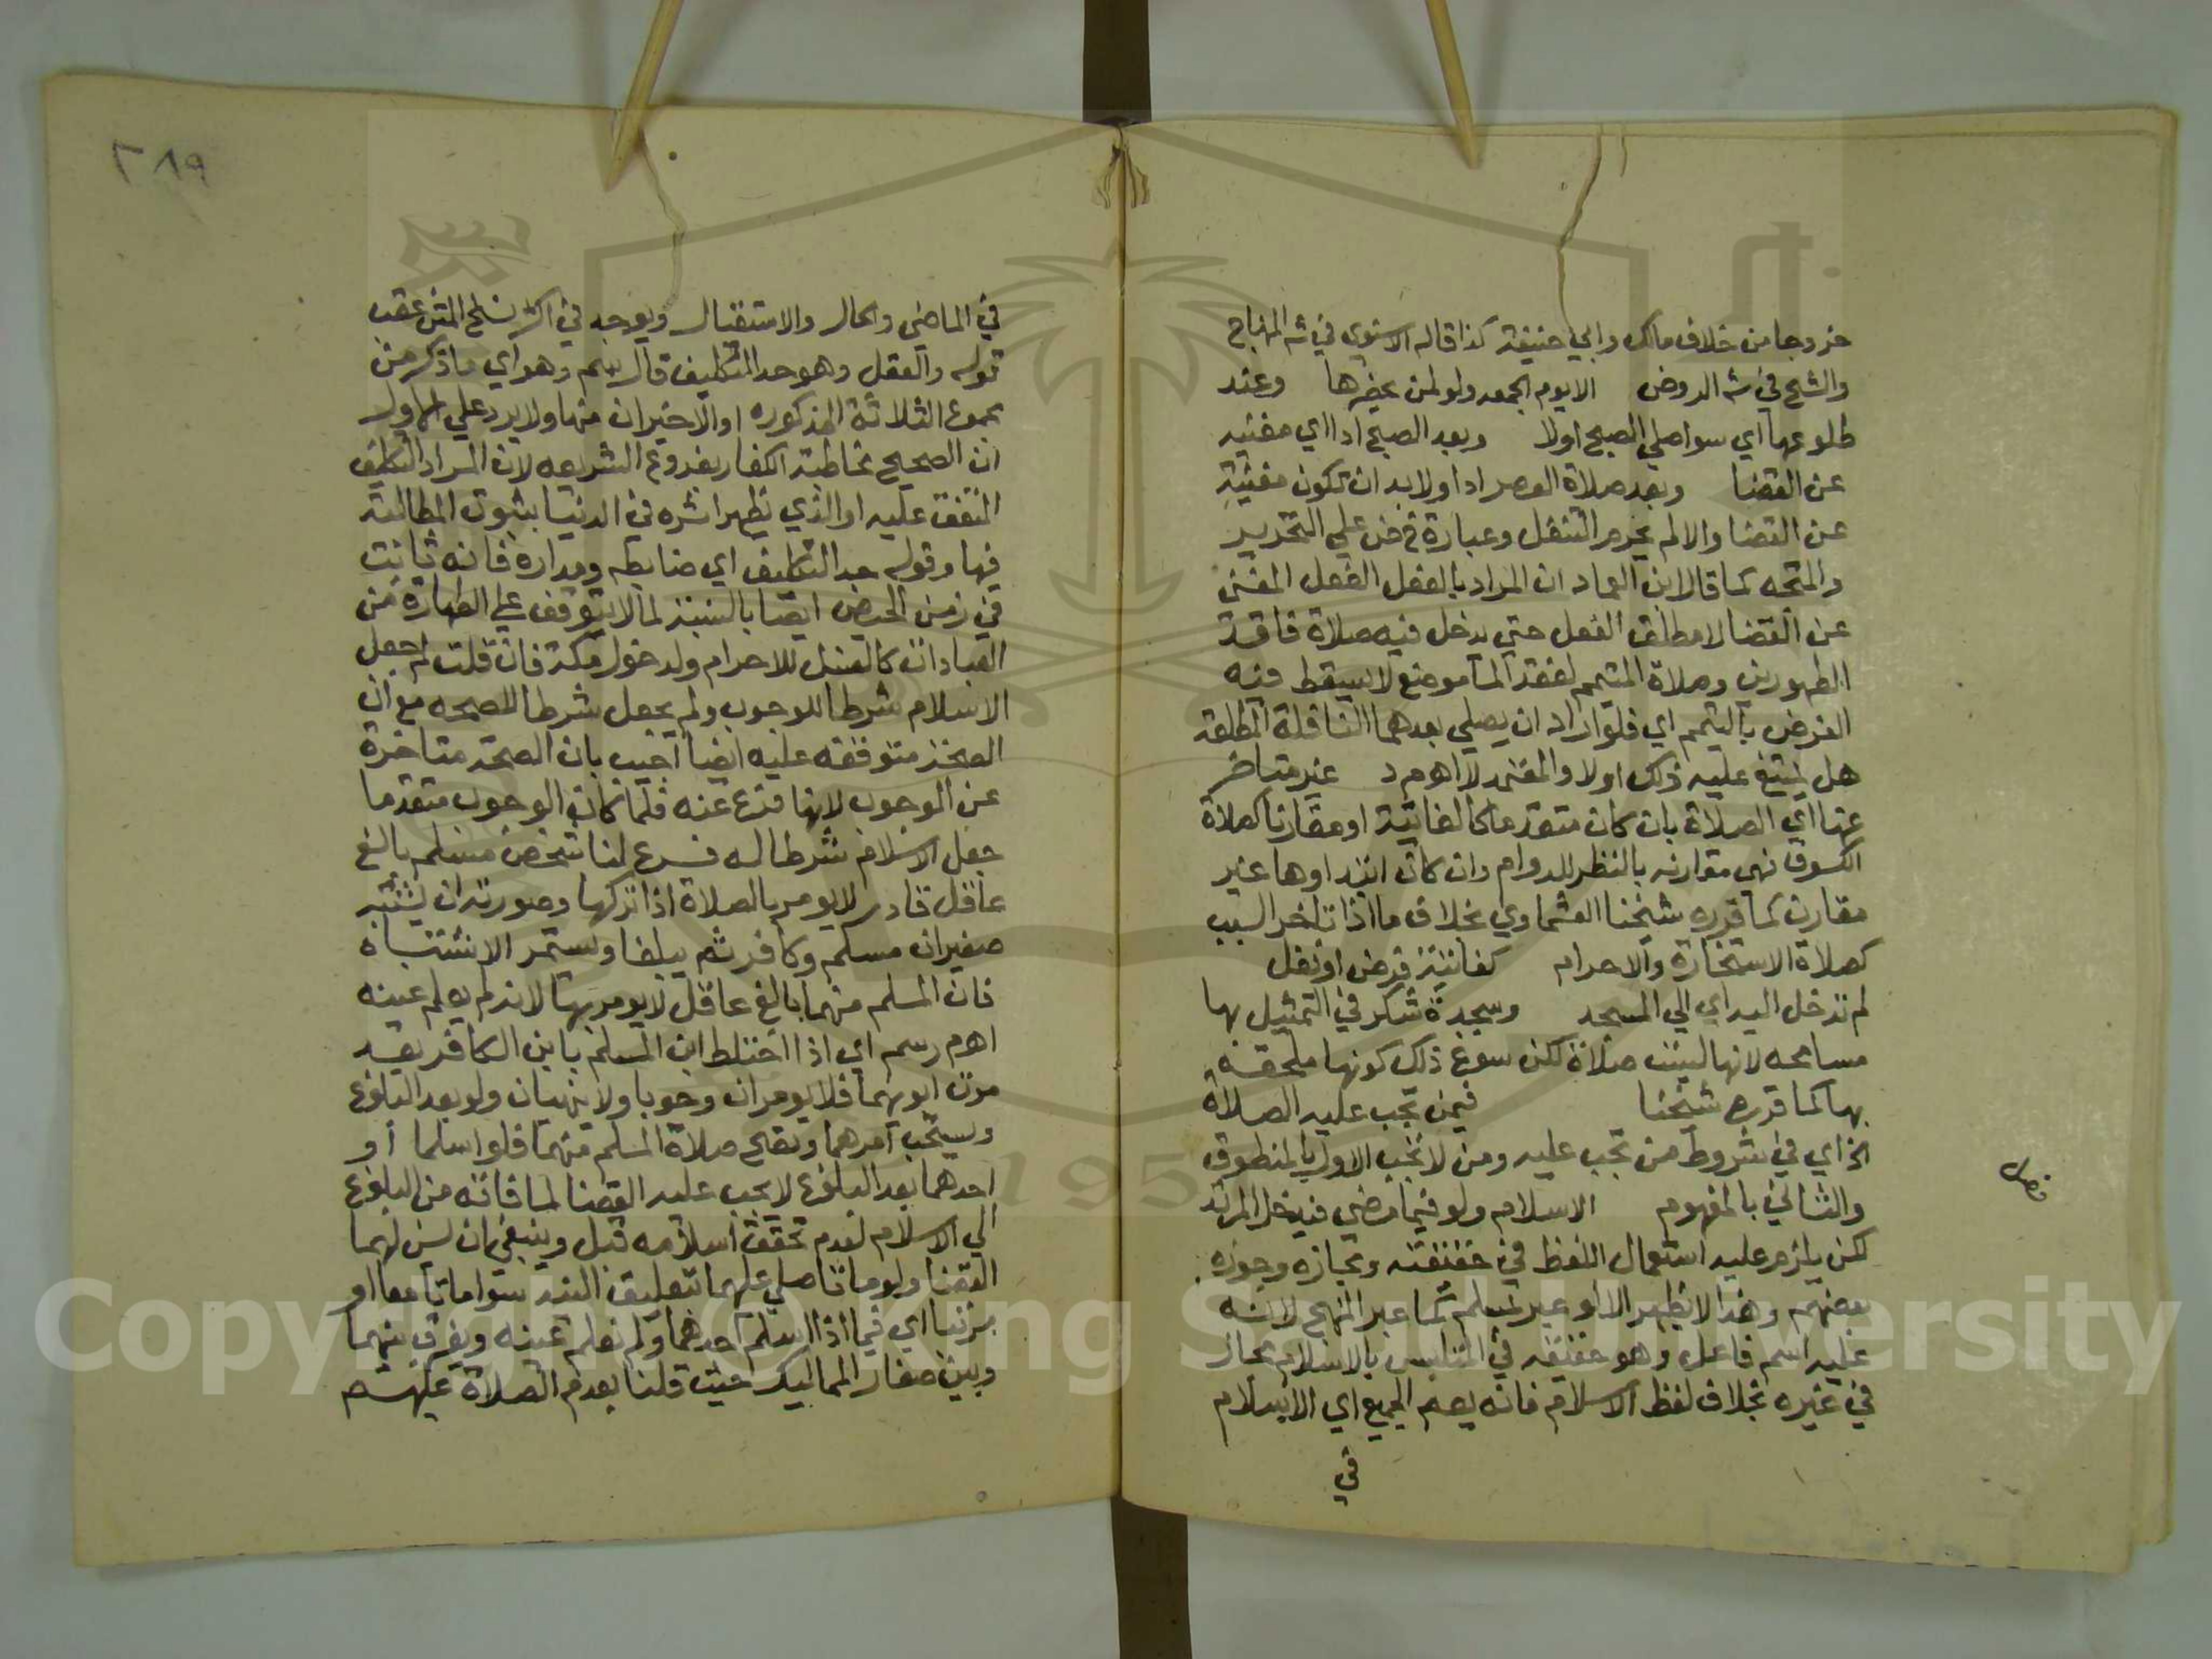 خروجا من خلاف مالك وابي حنيفة كذا قاله الاسنوي في شـ المنهاج
والشـح في شـ الروض الا يوم الجمعه ولو لمن يحضرها وعند
طلوعها اي سوا صلي الصبح اولا وبعد الصبح ادا اي مغنيه
عن القضا وبعد صلاة العصر ادا ولا بد ان تكون مغنية
عن القضا والا لم يحرم التنفل وعبارة ق ض علي التحرير
والمتجه كما قال ابن العماد ان المراد بالفعل الفعل المغني
عن القضا لا مطلق الفعل حتي يدخل فيه صلاة فاقد
الطهورين وصلاة المتيمم لفقد الما موضع لا يسقط فيه
الفرض بالتيمم اي فلو اراد ان يصلي بعدهما النافلة المطلقة
هل يمتنع عليه ذلك اولا والمعتمد لا اهـ م د غير متاخر
عنها اي الصلاة بان كان متقدما كالفائتة او مقارنا كصلاة
الكسوف فهي مقارنه بالنظر للدوام وان كان ابتداوها غير
مقارن كما قرره شيخنا العشماوي بخلاف ما اذا تاخر السبب
كصلاة الاستخارة والاحرام كفائتة فرض او نفل
لم تدخل اليه اي الي المسجد وسجدة شكر في التمثيل بها
مسامحه لانها ليست صلاة لكن سوغ ذلك كونها ملحقه
بها كما قرره شيخنا فيمن تجب عليه الصلاة
الخ اي في شروط من تجب عليه ومن لا تجب الاول بالمنطوق
فصل
والثاني بالمفهوم الاسلام ولو فيما مضي فيدخل المرتد
لكن يلزم عليه استعمال اللفظ في حقيقته ومجازه وجوزه
بعضهم وهذا لا يظهر الا لو عبر بمسلم كما عبر المنهج لانه
عليه اسم فاعل وهو حقيقه في المتلبس بالاسلام مجاز
في غيره بخلاف لفظ الاسلام فانه يعم الجميع اي الاسلام
في
٢٨٩
في الماضي والحال والاستقبال ويوجد في اكثر نسخ المتن عقب
قوله والعقل وهو حد التكليف قال سم وهو اي ما ذكر من
مجموع الثلاثة المذكوره او الاخيران منها ولا يرد علي الاول
ان الصحيح مخاطبة الكفار بفروع الشريعه لان المراد التكليف
المتفق عليه او الذي يظهر اثره في الدنيا بثبوت المطالبة
فيها وقوله حد التكليف اي ضابطه ومداره فانه ثابت
في زمن الحيض ايضا بالنسبة لما لا يتوقف علي الطهارة من
العبادات كالغسل للاحرام ولدخول مكة فان قلت لم جعل
الاسلام شرطا للوجوب ولم يجعل شرطا للصحه مع ان
الصحة متوقفه عليه ايضا اجيب بان الصحة متاخرة
عن الوجوب لانها فرع عنه فلما كان الوجوب متقدما
جعل الاسلام شرطا له فرع لنا شخص مسلم بالغ
عاقل قادر لا يومر بالصلاة اذا تركها وصورته ان يشتبه
صغيران مسلم وكافر ثم يبلغا ويستمر الاشتباه
فان المسلم منهما بالغ عاقل لا يومر بها لانه لم يعلم عينه
اهـ م ر سم اي اذا اختلط ابن المسلم بابن الكافر بعد
موت ابويهما فلا يومران وجوبا ولا ينهيان ولو بعد البلوغ
ويستحب امرهما وتصح صلاة المسلم منهما فلو اسلما او
احدهما بعد البلوغ لا يجب عليه القضا لما فاته من البلوغ
الي الاسلام لعدم تحقق اسلامه قبل وينبغي ان يسن لهما
القضا ولو ماتا صلي عليهما بتعليق النية سوا ماتا معا او
مرتبا اي فيما اذا اسلم احدهما ولم نعلم عينه ويفرق بينهما
وبين صغار المماليك حيث قلنا بعدم الصلاة عليهم
Copyright © King Saud University
1957